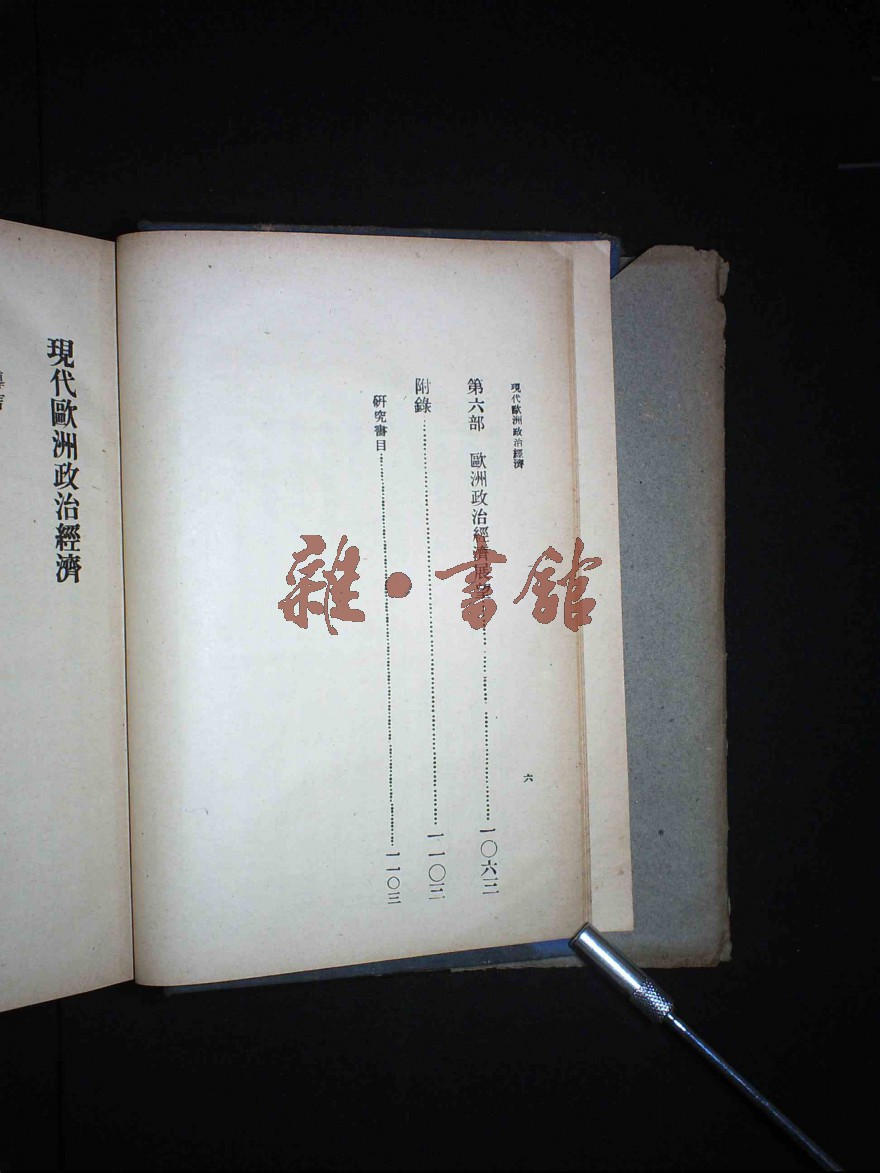 現代歐洲政治經濟
六
第六部　歐洲政治經濟展望…………一〇六三
附錄…………一一〇三
研究書目…………一一〇三
現代歐洲政治經濟
雜·書館